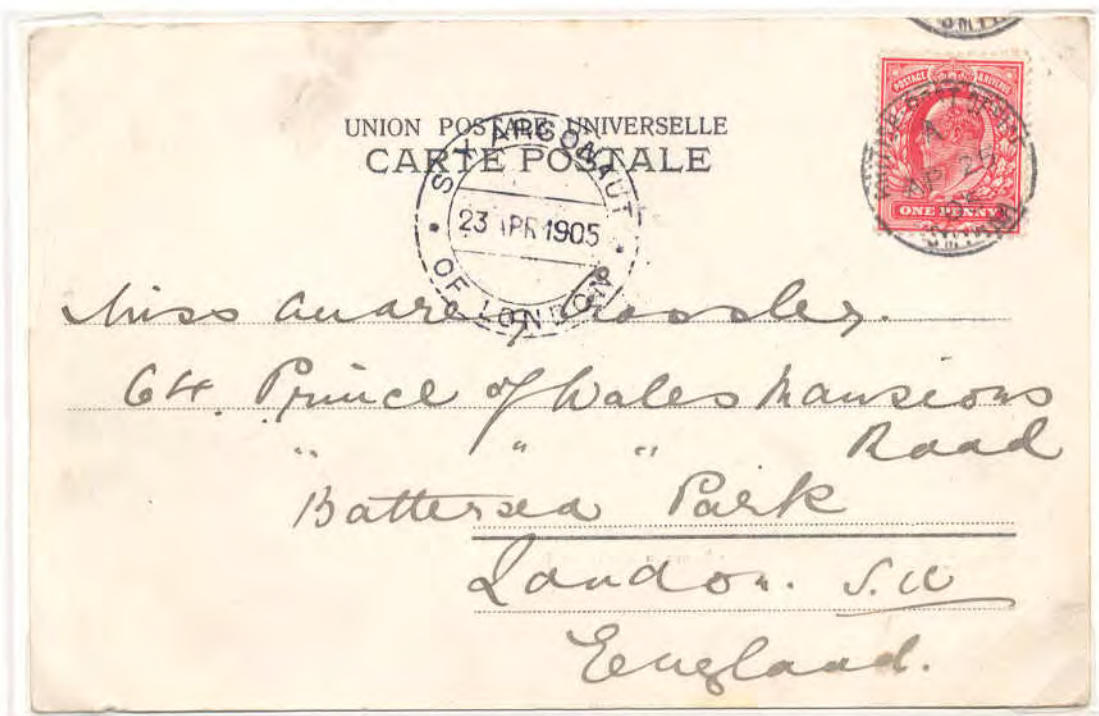 UNION POSTALE UNIVERSELLE
CARTE POSTALE
S.Y. ARGONAUT
23 APR 1905
OF LONDON
POSTAGE & REVENUE
A
AP 26
05
ONE PENNY
Miss Crossley.
64. Prince of Wales Mansions
" " " Road
Battersea Park
London. S.W
England.